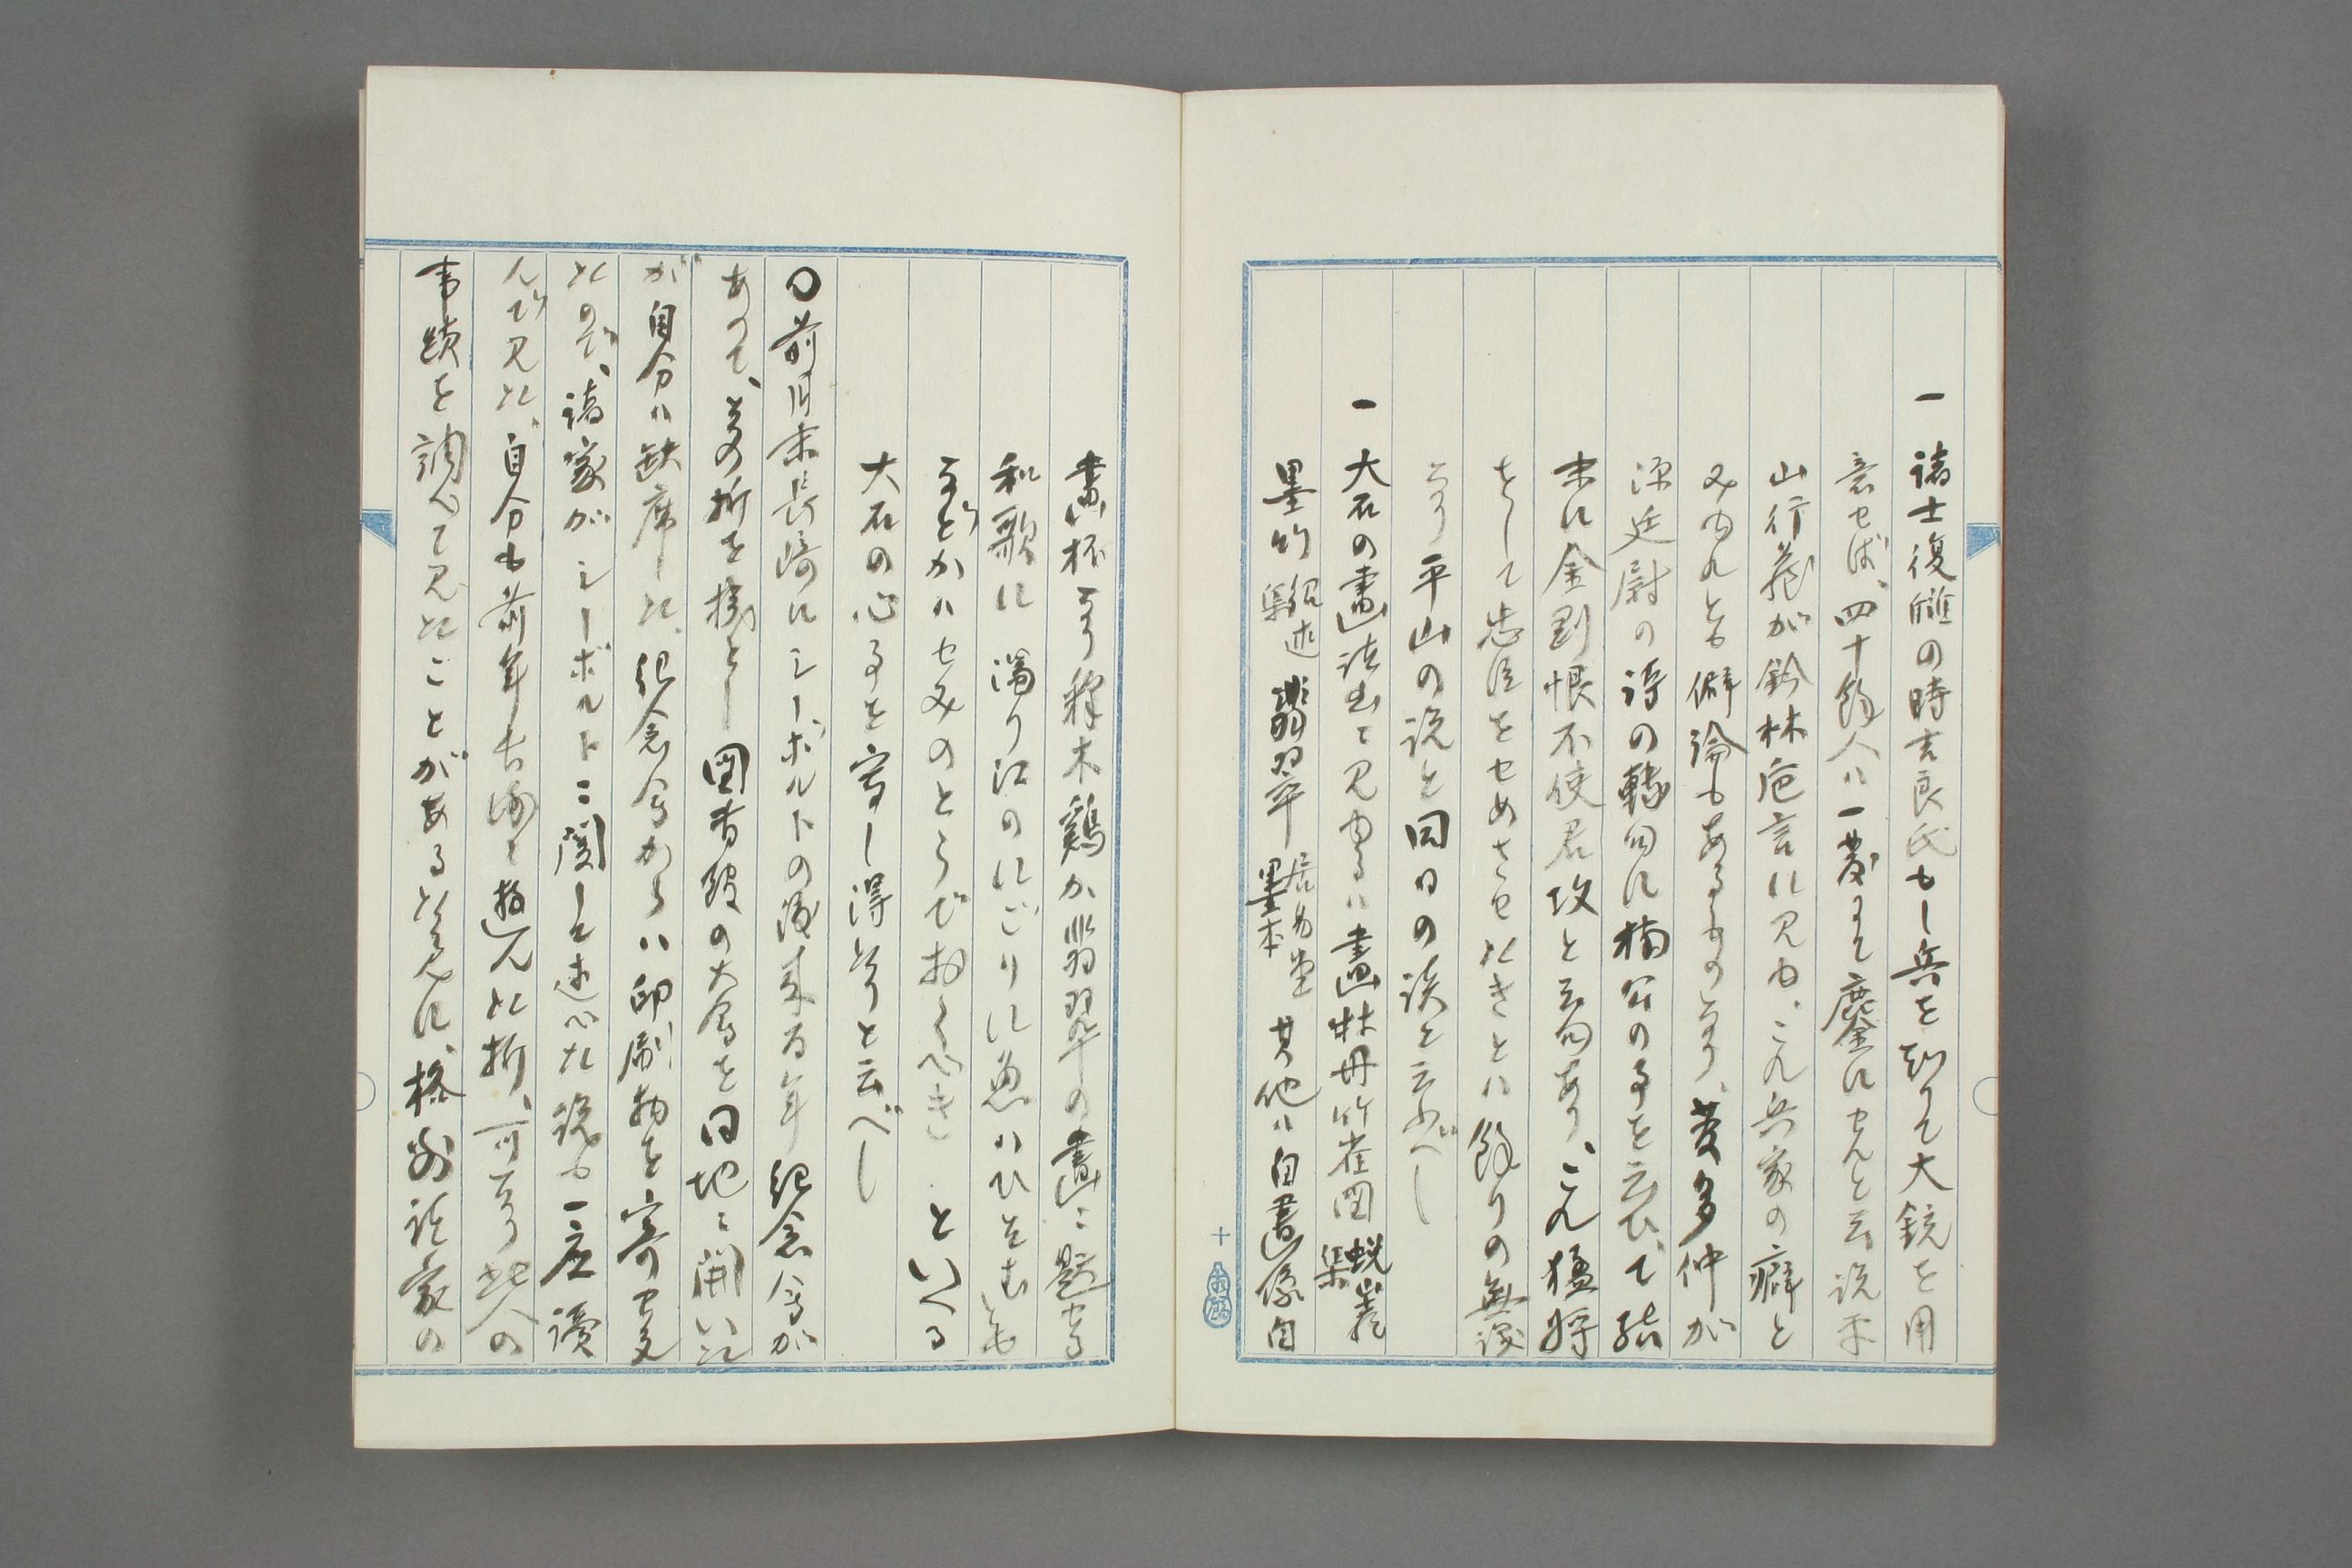 一 諸士復讎の時吉良氏もし兵を知りて大銃を用
意せば、四十余人ハ一発にて鏖にせんと云説平
山行蔵が鈐林巵言に見ゆ、これ兵家の癖と
みゆれとも僻論もあるものなり、菱多仲が
源廷尉の詩の轉句に楠公の事を云ひて結
末に金剛恨不使君攻と云句あり、これ猛将
をして忠臣をせめさせたきとハ余りの無謀
なり平山の説と同日の談と云ふべし
一 大石の画諸書に見ゆるハ画牡丹竹雀図 蛻巌集
墨竹 紹述集 翡翠 居易堂墨本 其他ハ自画像自
画杯なり釋木鶏か翡翠の画ニ題せる
和歌に 濁り江のにごりに魚ハひそむとも
などかハせみのとらでおくべき といへる
大石の心事を寫し得たりと云べし
〇前月末長崎にシーボルトの渡来百年紀念会が
あつて、その折を機とし図書館の大会を同地に開いた
が自分ハ缺席した、紀念会からハ印刷物を寄せ来
たので、諸家がシーボルトニ関して述べた説も一应讀
んで見た、自分も前年長崎に遊んだ折、可なり此人の
事蹟を調べて見たことがある 為に、格別諸家の